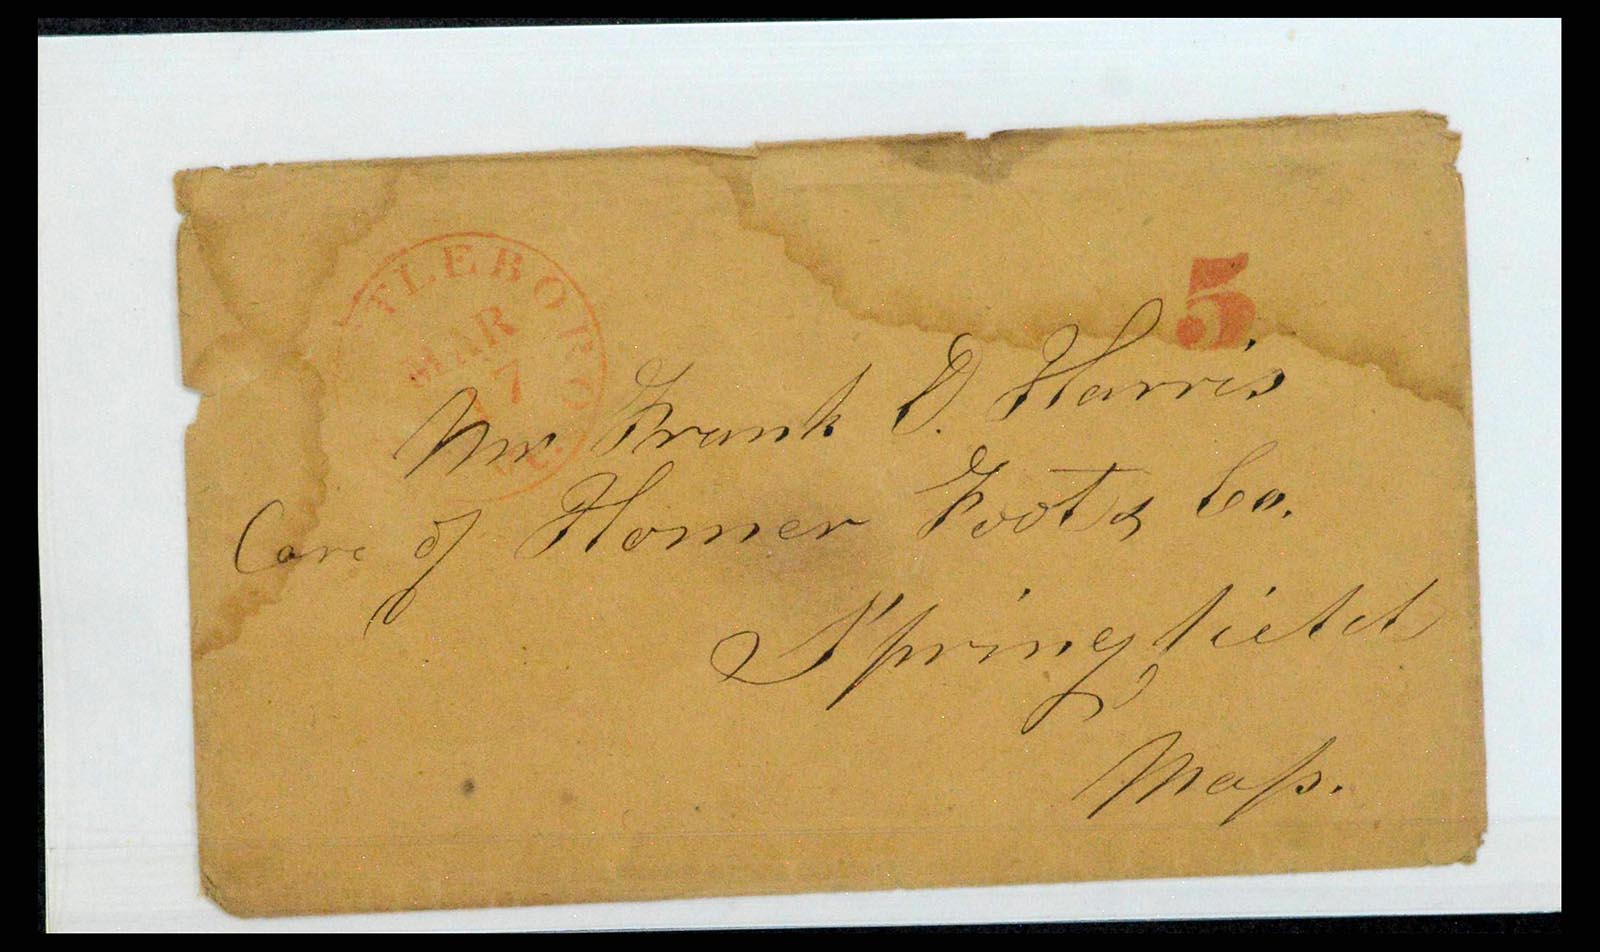 TTLEBORO
MAR
7
5
Mr Frank D. Harris
Care of Homer Foot & Co.
Springfield
Maſs.